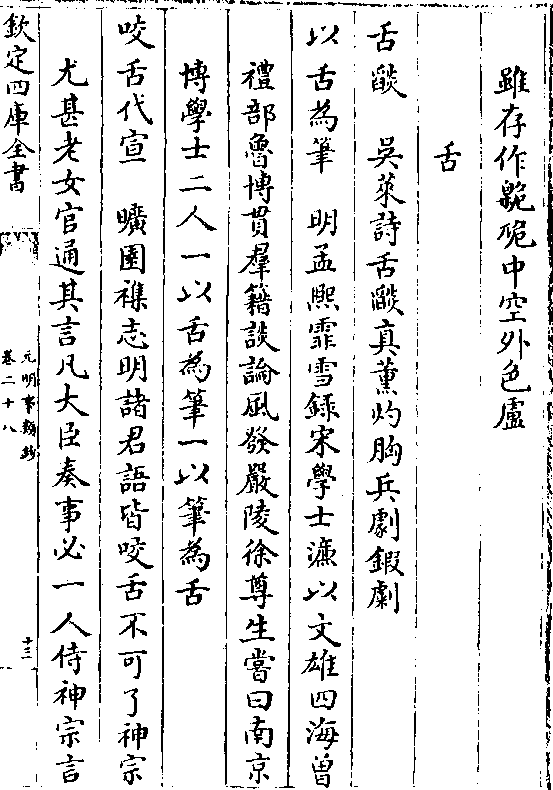 雖存作䶌卼中空外色盧
舌
舌燄　吳萊詩舌燄真薰灼胸兵劇鍜劇
以舌為筆　明孟熈霏雪録宋學士濂以文雄四海曾
禮部魯博貫羣籍談論風發嚴陵徐尊生嘗曰南京
博學士二人一以舌為筆一以筆為舌
咬舌代宣　曠園襍志明諸君語皆咬舌不可了神宗
尤甚老女官通其言凡大臣奏事必一人侍神宗言
欽定四庫全書
元明事類鈔
卷二十八
十三